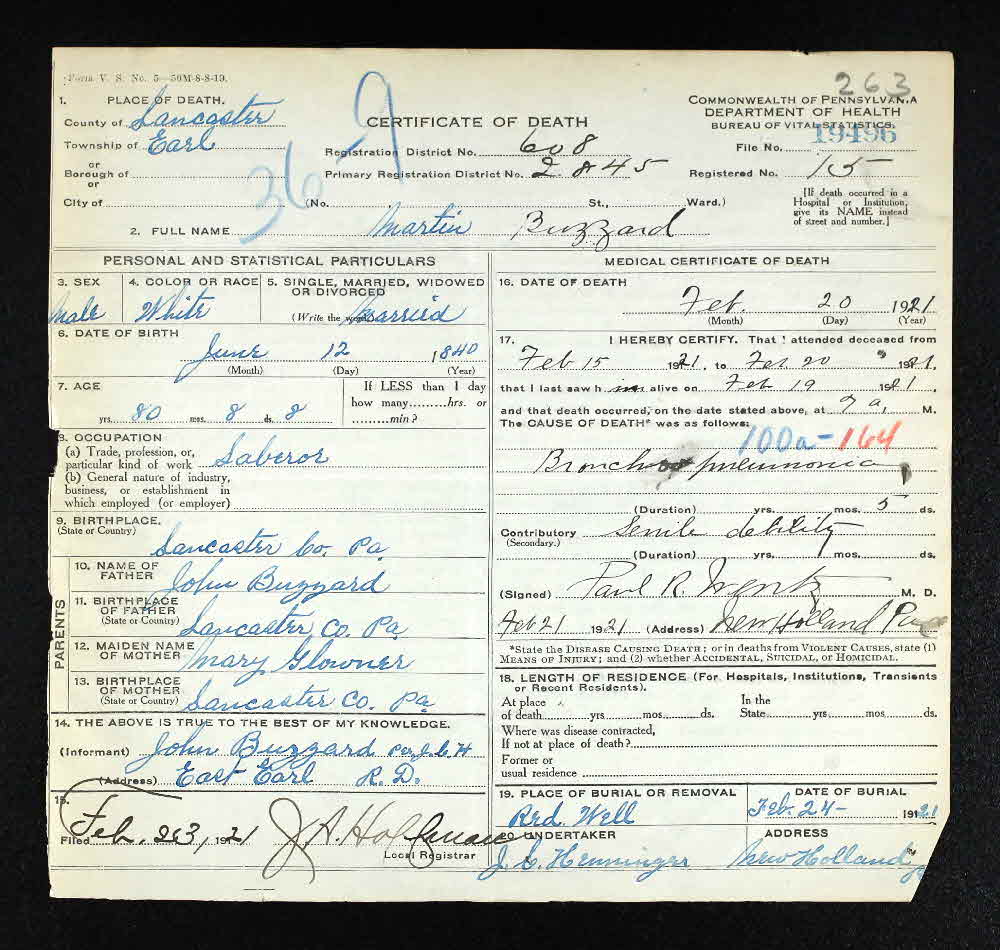 Form V. S. No. 5—50M-8-8-19.
263
1. PLACE OF DEATH.
County of Lancaster
Township of Earl
or
Borough of
or
City of
CERTIFICATE OF DEATH
Registration District No. 608
Primary Registration District No. 2845
(No. St., Ward.)
COMMONWEALTH OF PENNSYLVANIA
DEPARTMENT OF HEALTH
BUREAU OF VITAL STATISTICS.
File No. 19496
Registered No. 15
[If death occurred in a
Hospital or Institution,
give its NAME instead
of street and number.]
367
2. FULL NAME Martin Buzzard
PERSONAL AND STATISTICAL PARTICULARS
3. SEX
Male
4. COLOR OR RACE
White
5. SINGLE, MARRIED, WIDOWED
OR DIVORCED
(Write the word) Married
6. DATE OF BIRTH
June 12 1840
(Month) (Day) (Year)
7. AGE
yrs. 80 mos. 8 ds. 8
If LESS than 1 day
how many.........hrs. or
.........min?
8. OCCUPATION
(a) Trade, profession, or,
particular kind of work Laberor
(b) General nature of industry,
business, or establishment in
which employed (or employer)
9. BIRTHPLACE.
(State or Country)
Lancaster Co. Pa
PARENTS
10. NAME OF
FATHER
John Buzzard
11. BIRTHPLACE
OF FATHER
(State or Country)
Lancaster Co. Pa
12. MAIDEN NAME
OF MOTHER
Mary Glowner
13. BIRTHPLACE
OF MOTHER
(State or Country)
Lancaster Co. Pa
14. THE ABOVE IS TRUE TO THE BEST OF MY KNOWLEDGE.
(Informant) John Buzzard Per J.C.H
(Address) East Earl R.D.
15.
Filed Feb. 23, 1921 J. A. Hoffman
Local Registrar
MEDICAL CERTIFICATE OF DEATH
16. DATE OF DEATH
Feb. 20 1921
(Month) (Day) (Year)
17. I HEREBY CERTIFY. That I attended deceased from
Feb 15 1921, to Feb. 20 1921,
that I last saw him alive on Feb 19 1921,
and that death occurred, on the date stated above, at 7 a, M.
The CAUSE OF DEATH* was as follows:
100a-164
Broncho pneumonia
(Duration) yrs. mos. 5 ds.
Contributory Senile debility
(Secondary.)
(Duration) yrs. mos. ds.
(Signed) Paul R. Wentz M. D.
Feb 21 1921 (Address) New Holland Pa
*State the DISEASE CAUSING DEATH; or in deaths from VIOLENT CAUSES, state (1)
MEANS OF INJURY; and (2) whether ACCIDENTAL, SUICIDAL, or HOMICIDAL.
18. LENGTH OF RESIDENCE (For Hospitals, Institutions, Transients
or Recent Residents).
At place In the
of death yrs mos. ds. State yrs. mos. ds.
Where was disease contracted,
If not at place of death?
Former or
usual residence
19. PLACE OF BURIAL OR REMOVAL
Red. Well
DATE OF BURIAL
Feb. 24- 1921
20 UNDERTAKER
J. C. Henninger
ADDRESS
New Holland Pa